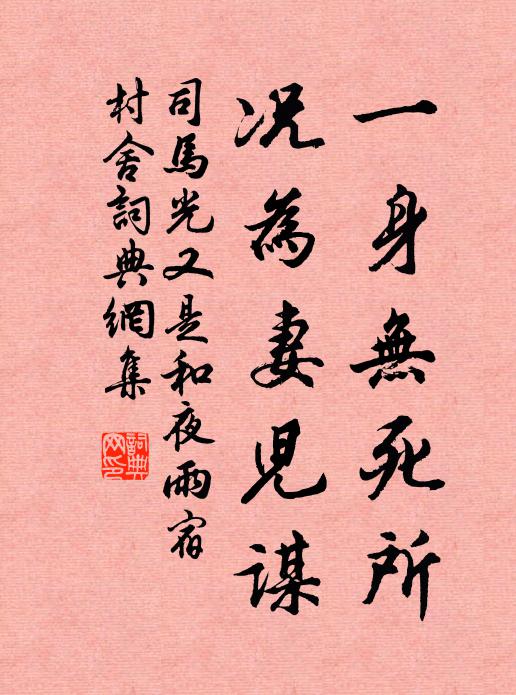 一身無死所
況為妻児謀
司馬光又是和夜雨宿
村舍詞典網集
詞典
网印